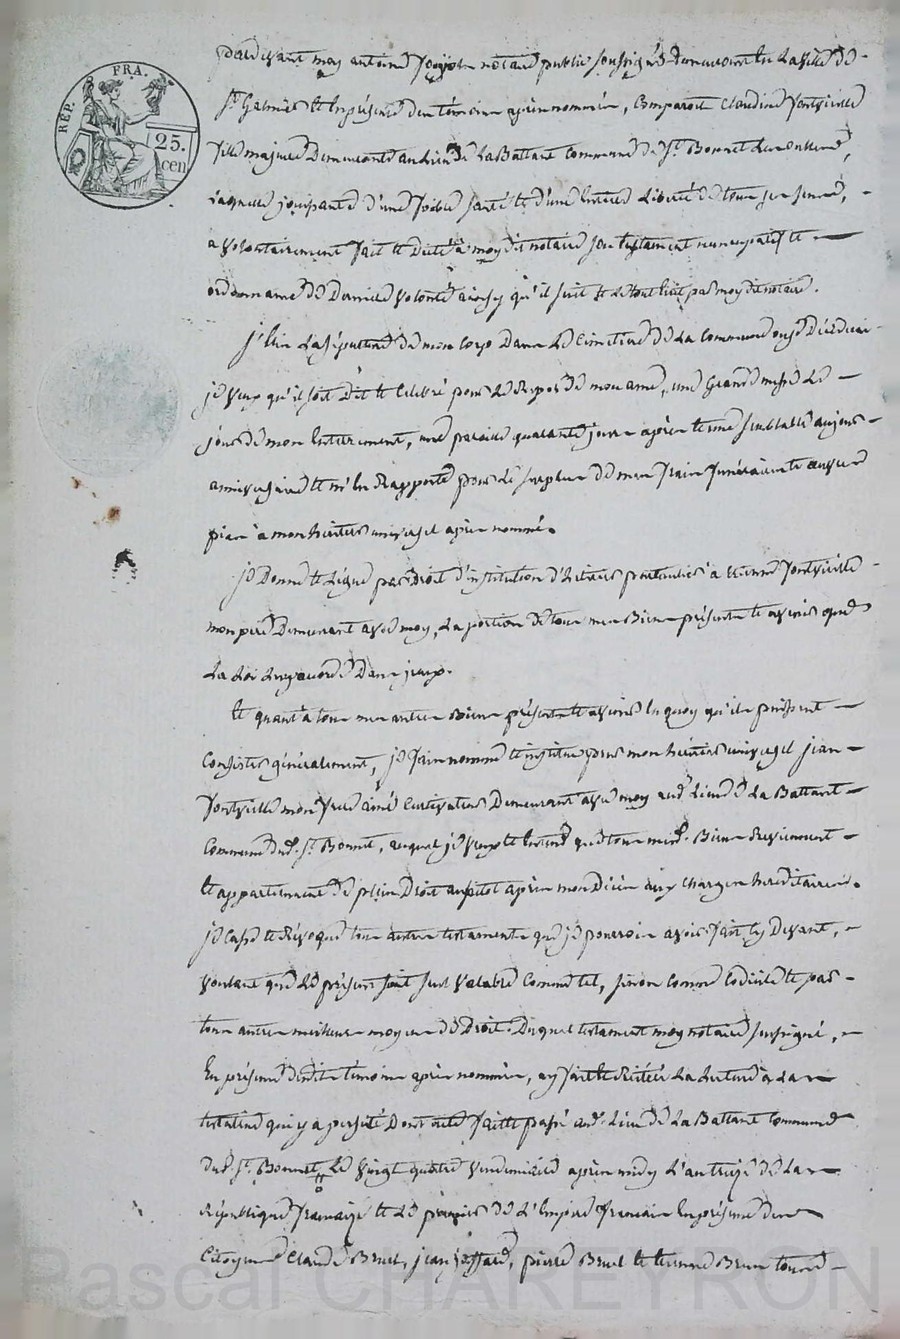 RÉP. FRA.
25. cen
pardevant moy antoine notaire public soussigné demeurant en la ville de
St Galmier et en présence des témoins après nommés, comparait Claudine fontvieille
fille majeure demeurante au lieu de la Battant commune de St Bonnet
laquelle jouissante d'une foible santé et d'une entière liberté de tous ses sens,
a volontairement fait et dicté à moy dit notaire son testament nuncupatif et
ordonnance de dernière volonté ainsy qu'il suit et le tout écrit par moy dit notaire.
j'élis la sépulture de mon corps dans le cimetière de la commune où je décéderai
je veux qu'il soit dit et célébré pour le repos de mon ame, une grand messe le
jour de mon enterrement, une pareille quarante jours après et une semblable au jour
anniversaire et m'en rapporte pour le surplus de mes frais funéraires et œuvres
pies à mon héritier universel après nommé.
je donne et lègue par droit d'institution d'héritier particulier à Etienne fontvieille
mon père demeurant avec moy, la portion de tous mes Biens présents et avenir que
la Loi luy accorde dans iceux.
et quant à tous mes autres Biens présents et avenir en quoy qu'ils puissent
consister généralement, je fais nomme et institue pour mon héritier universel jean
fontvieille mon frère ainé cultivateur demeurant avec moy aud. Lieu de La Battant
commune dud. St Bonnet, auquel je veux et entend que tous mesd. Biens reviennent
et appartiennent de plein Droit aussitot après mon Décès aux charges héréditaires.
je casse et révoque tous autres testaments que je pourrois avoir fait cy devant,
voulant que le présent soit seul valable comme tel, sinon comme codicile et par
tous autres meilleurs moyens de Droit. Duquel testament moy notaire soussigné,
En présence desdits témoins après nommés, ay fait et réitéré la lecture à la
testatrice qui y a persisté Dont acte fait et passé aud. Lieu de La Battant commune
dud. St Bonnet, Le vingt quatre vendemiaire après midy L'an treize de la
république française et le premier de l'Empire français En présence des
Citoyens Claude Brunel, jean, pierre Brunel et Etienne Brun tous
Pascal CHAREYRON